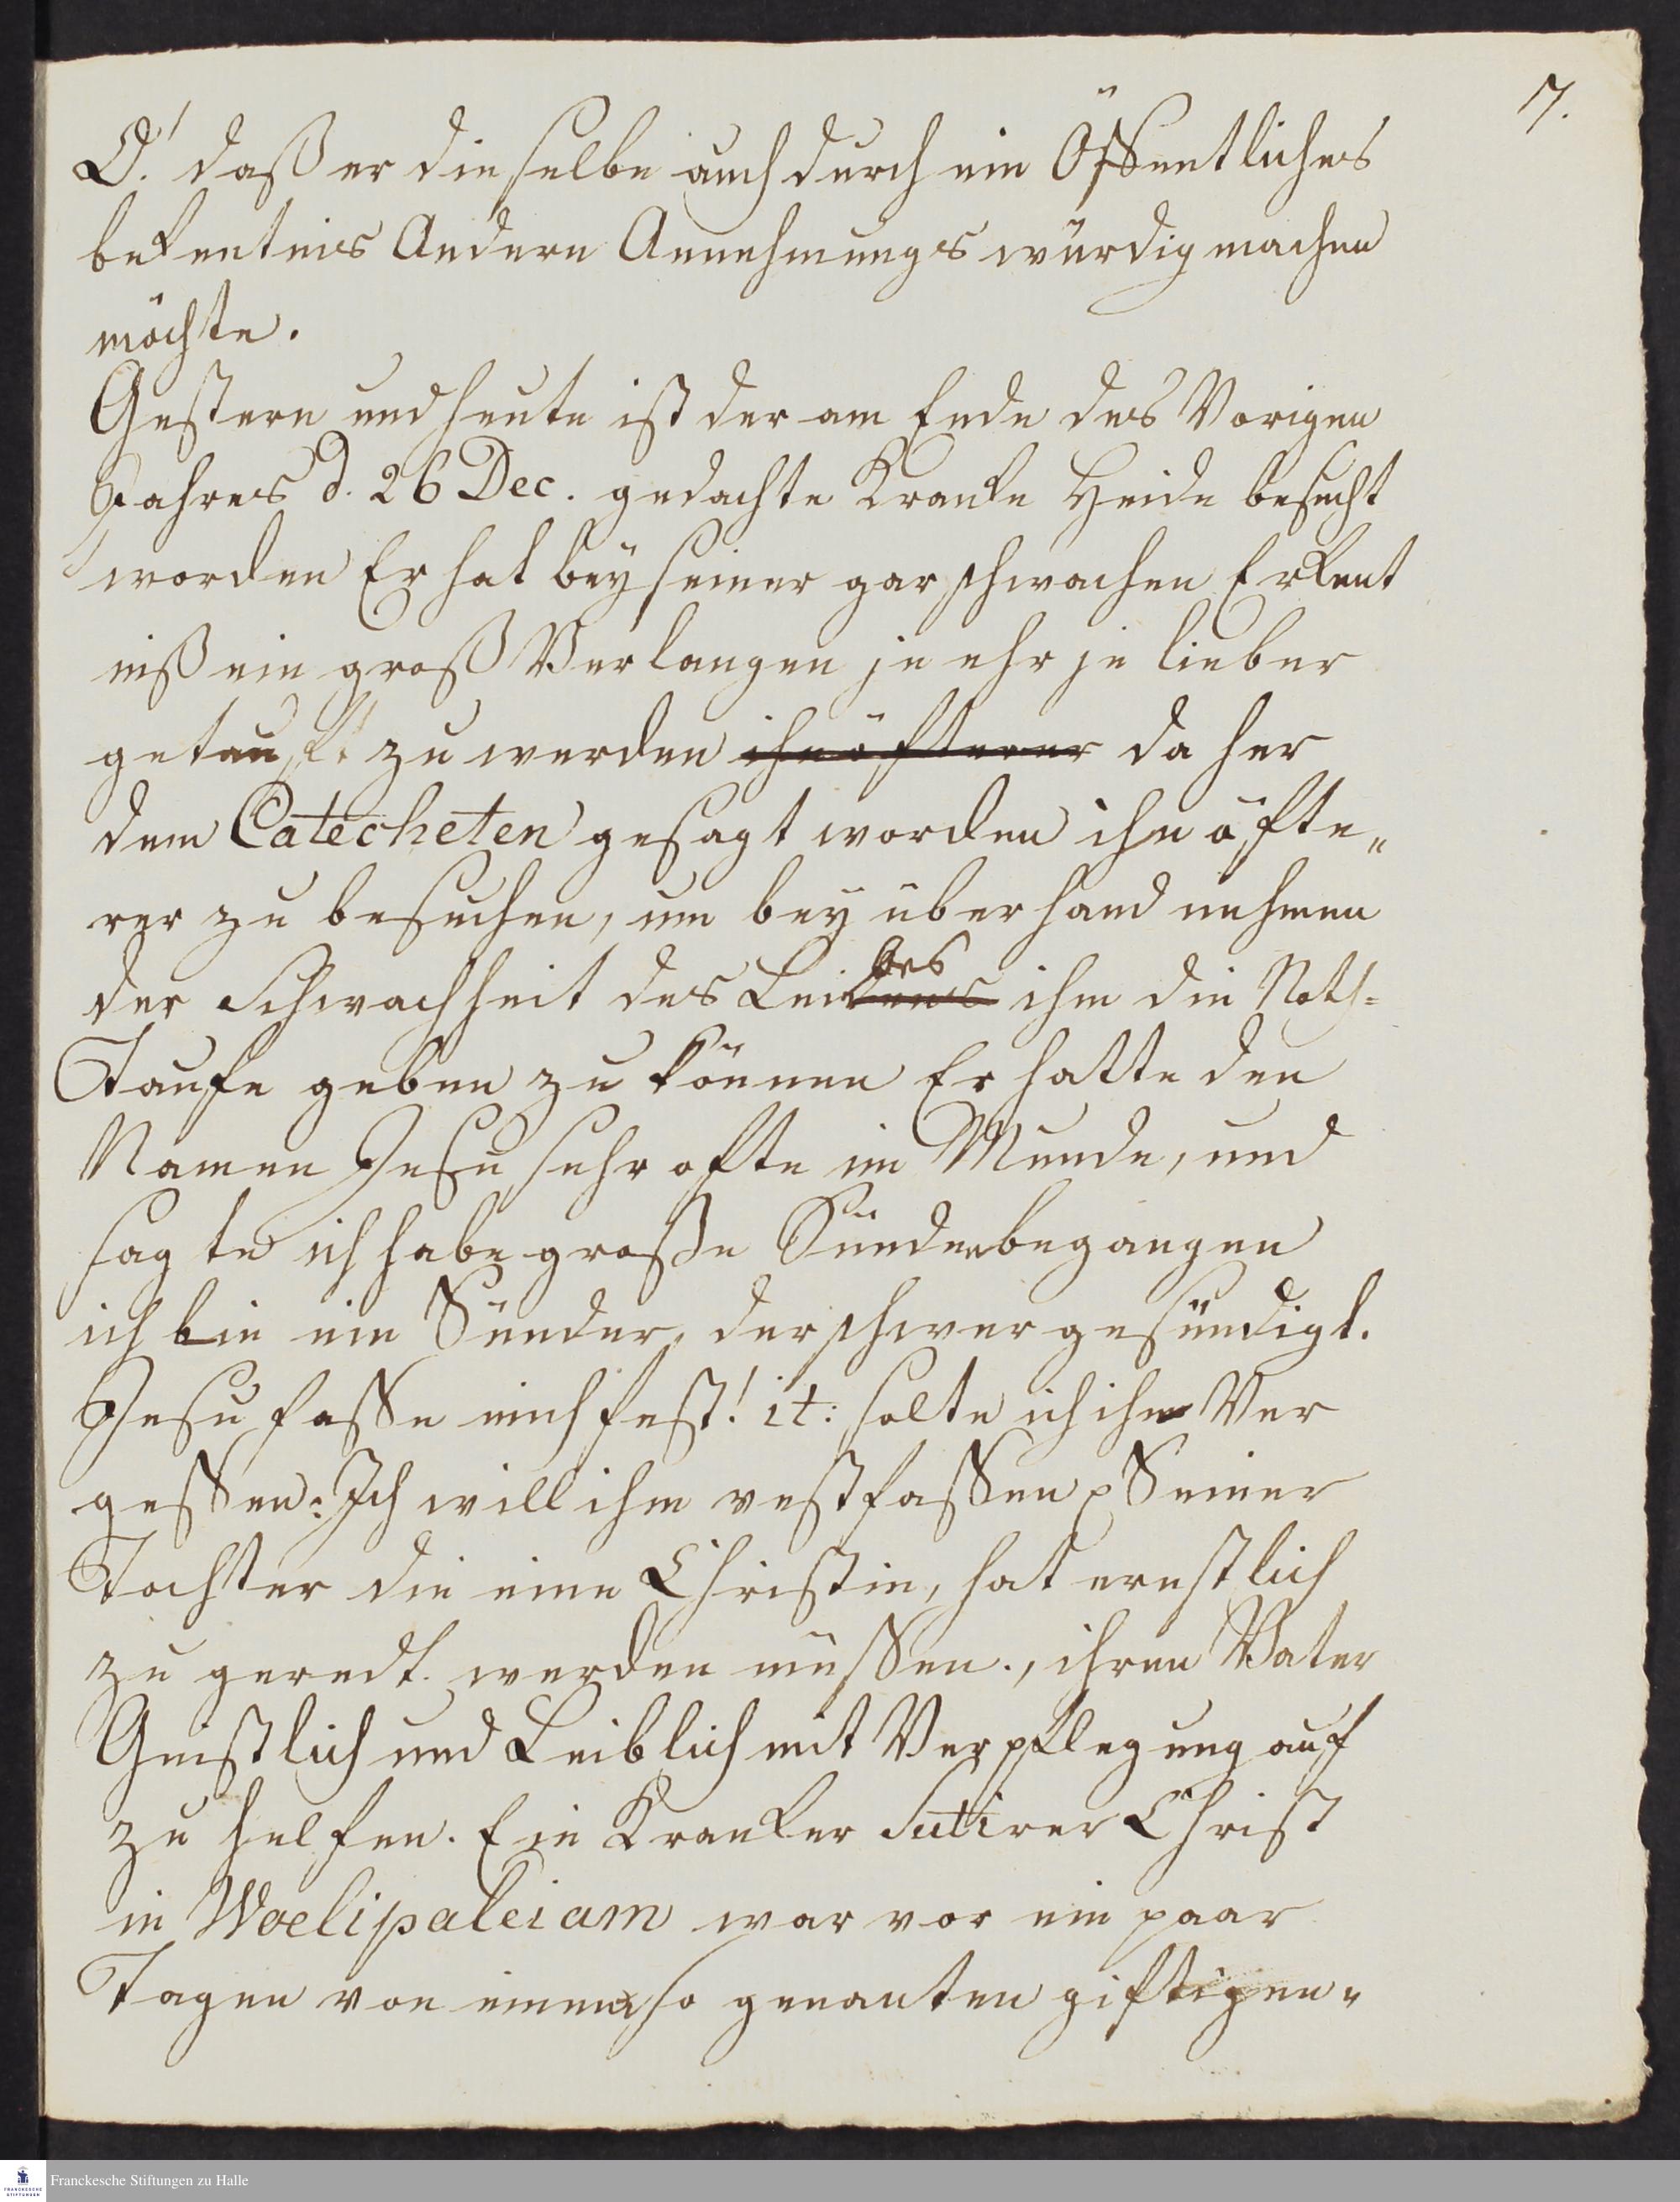 7.
O! daß er dieselbe auch durch ein Öffentliches
bekentnis Andern Annehmungs würdig machen
möchte.
Gestern und heute ist der am Ende des Vorigen
Jahres d. 26 Dec. gedachte Kranke Heide besucht
worden Er hat bey seiner gar schwachen Erkent
niß ein groß Verlangen je ehr je lieber
getauft zu werden ihn öfterer da her
dem Catecheten gesagt worden ihn öfte„
rer zu besuchen, um bey überhand nehmen
der Schwachheit des Leibes ihm die Noth=
Taufe geben zu können Er hatte den
Namen Jesu sehr ofte im Munde, und
sagte ich habe große Sünden begangen
ich bin ein Sünder, der schwer gesündigt.
Jesu fasse mich fest! it: solte ich ihn Ver
gessen: Ich will ihm vest fassen Seiner
Tochter die eine Christin, hat ernstlich
zu geredt. werden müssen., ihren Vater
Geistlich und Leiblich mit Verpflegung auf
zu helfen. Ein Kranker Sutirer Christ
in Woelipaleiam war vor ein paar
Tagen von einem so genanten giftigen„
Franckesche Stiftungen zu Halle